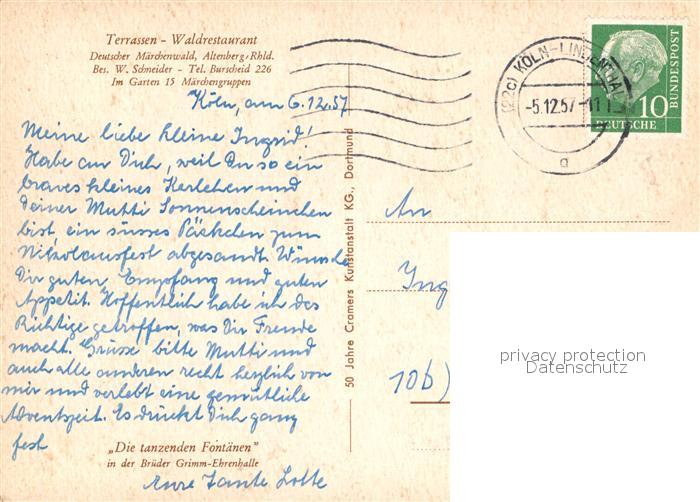 Terrassen - Waldrestaurant
Deutscher Märchenwald, Altenberg/Rhld.
Bes. W. Schneider - Tel. Burscheid 226
Im Garten 15 Märchengruppen
Köln, am 6.12.57
Meine liebe kleine Ingrid!
Habe an Dich, weil Du so ein
braves kleines Kerlchen und
Deiner Mutti Sonnenscheinchen
bist, ein süsses Päckchen zum
Nikolausfest abgesandt. Wünsche
Dir guten Empfang und guten
Appetit. Hoffentlich habe ich das
Richtige getroffen, was Dir Freude
macht. Grüsse bitte Mutti und
auch alle anderen recht herzlich von
mir und verlebt eine gemütliche
Adventszeit. Es drückt Dich ganz
fest
„Die tanzenden Fontänen"
in der Brüder Grimm-Ehrenhalle
Eure Tante Lotte
50 Jahre Cramers Kunstanstalt KG., Dortmund
(22c) KÖLN-LINDENTHAL
-5.12.57.-11
a
10
DEUTSCHE
BUNDESPOST
An
Ing
10b)
privacy protection
Datenschutz